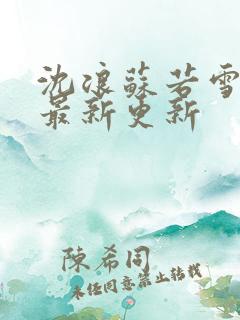 沈浪蘇若雪
最新更新
陳希同
未经同意禁止转载